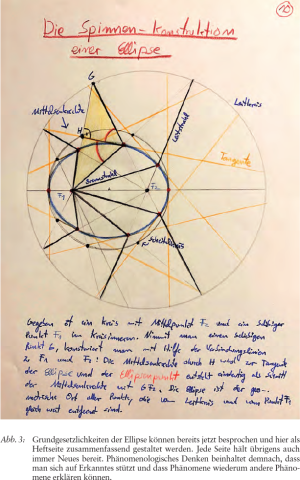 10
Die Spinnen-Konstruktion
einer Ellipse
G
Mittelsenkrechte
Leitkreis
H
Leitstrahl
Tangente
Brennstrahl
F₁
F₂
Gegeben ist ein Kreis mit Mittelpunkt F₂ und ein beliebiger
Punkt F₁ im Kreisinneren. Nimmt man einen beliebigen
Punkt G, konstruiert man mit Hilfe der Verbindungslinien
Die Mittelsenkrechte durch H wird zur Tangente
der Ellipse und der Ellipsenpunkt entsteht eindeutig als Schnitt
der Mittelsenkrechte mit GF₂. Die Ellipse ist der geo-
metrische Ort aller Punkte, die vom Leitkreis und vom Punkt F₁
gleich weit entfernt sind.
Abb. 3: Grundgesetzlichkeiten der Ellipse können bereits jetzt besprochen und hier als
Heftseite zusammenfassend gestaltet werden. Jede Seite hält übrigens auch
immer Neues bereit. Phänomenologisches Denken beinhaltet demnach, dass
man sich auf Erkanntes stützt und dass Phänomene wiederum andere Phäno-
mene erklären können.